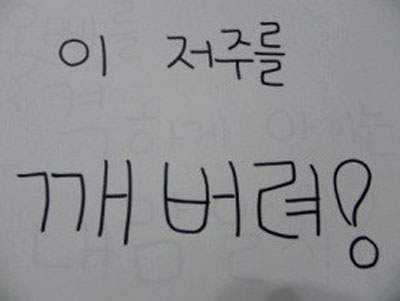 이 저주를
깨버려!